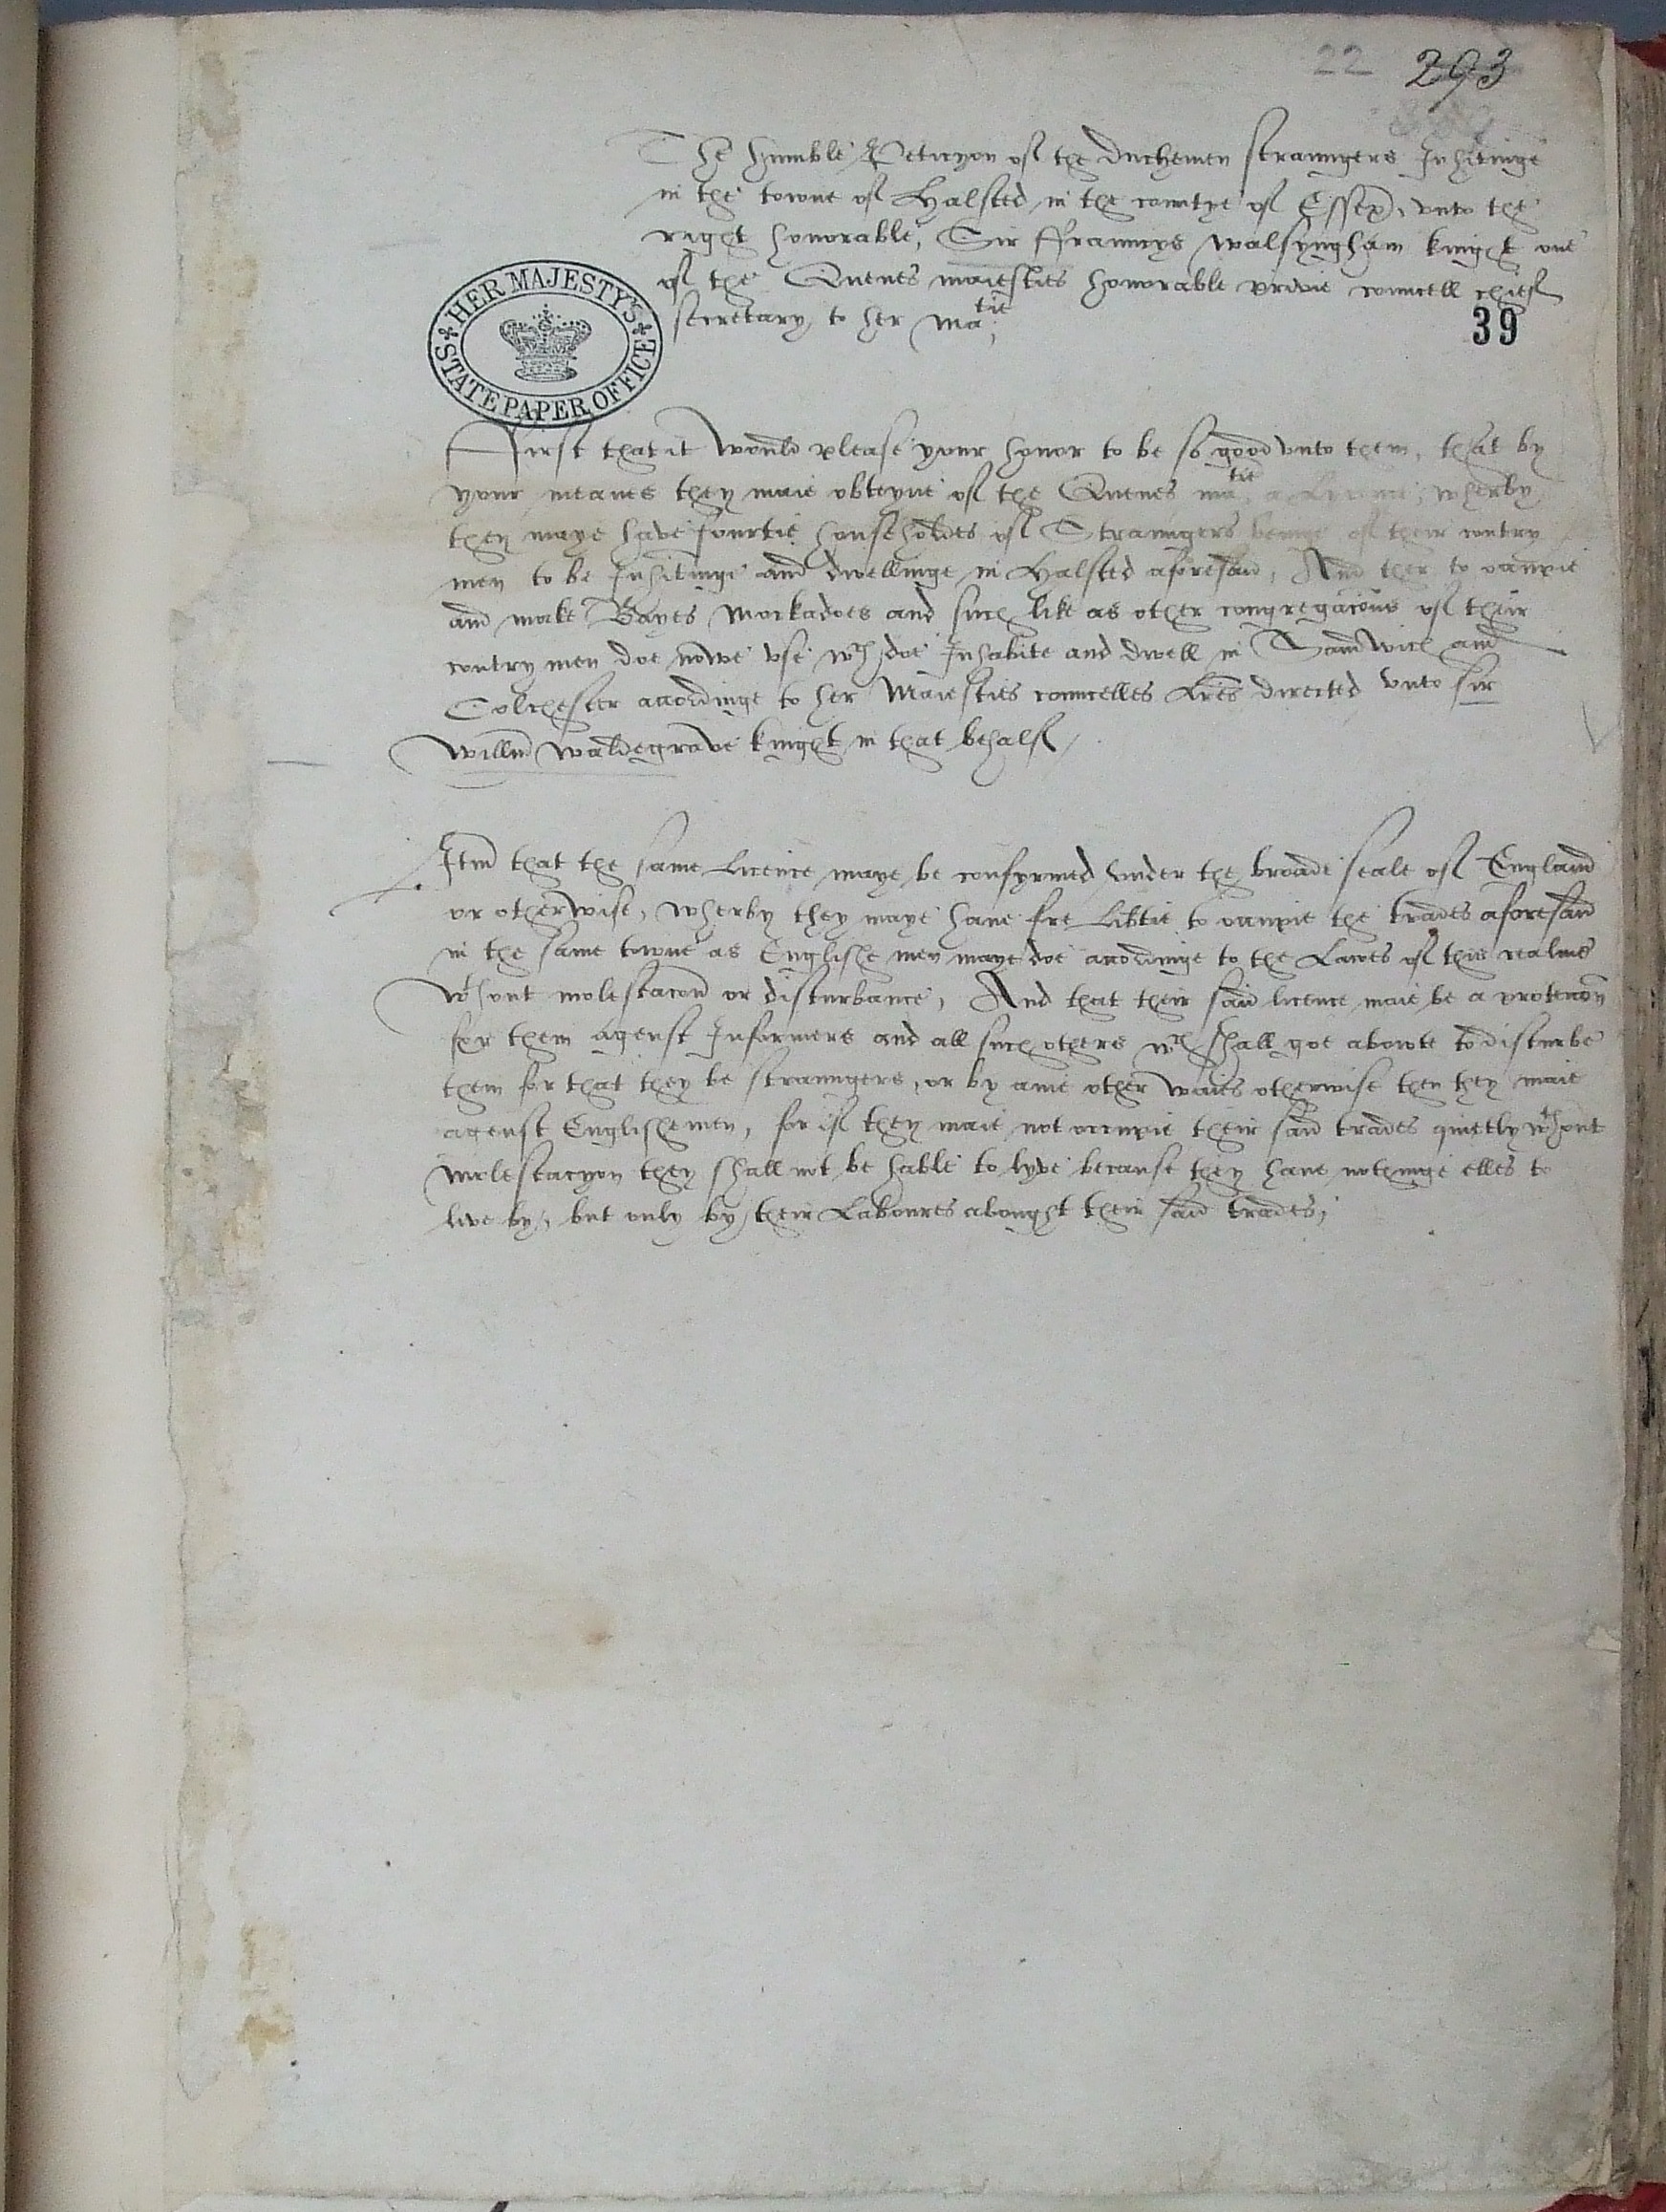 22 293
The humble Peticyon of the duchemen straungers Inhitinge
in the towne of Halsted in the countye of Essex, vnto the
right honorable, Sir ffrauncys walsyngham knight one
of the Quenes maiesties honorable privie councell chief
secretary to her Matie,
39
HER MAJESTY'S STATE PAPER OFFICE
First that it would please your honor to be so good vnto them, that by
your meanes they maie obteyne of the Quenes matie a Licence, wherby
they maye have fourtie housholdes of Straungers beinge of their contry
men to be Inhitinge and dwellinge in Halsted aforesaid, And ther to occupie
and make Bayes Mockadoes and such like as other congregacons of their
contry men doe nowe vse wch doe Inhabite and dwell in Sandwich and
Colchester accordinge to her Maiesties councelles Lres directed vnto Sir
Willm Waldegrave knight in that behalf,
Itm that the same Licence maye be confyrmed vnder the broade seale of England
or otherwise, wherby they maye have fre Libtie to occupie the trades aforesaid
in the same towne as Englishe men maye doe accordinge to the Lawes of this realme
wthout molestacon or disturbance, And that their said licence maie be a protecon
for them agenst Informers and all such others wch shall goe abowte to disturbe
them for that they be straungers, or by anie other waies otherwise then they maie
agenst Englishemen, for if they maie not occupie their said trades quietly wthout
molestacyon they shall not be hable to lyve because they have nothinge elles to
live by, but only by their Laboures abought their said trades,